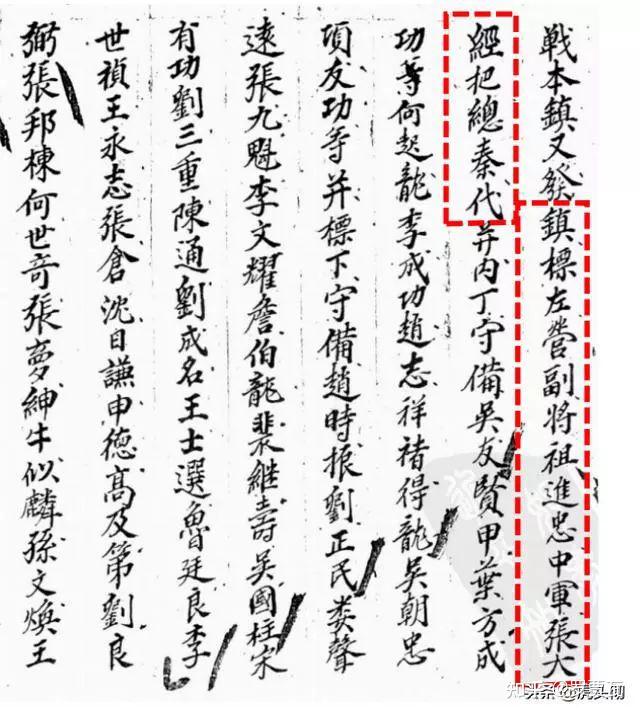 戦本鎮又發鎮標左營副將祖進忠中軍張大
經把總秦代并内丁守備吳友賢甲葉方成
功等何起龍李成功趙志祥禇得龍吳朝忠
項友功等并標下守備趙時振劉正民娄聲
遠張九魁李文耀詹伯龍裴継壽吳國柱宋
有功劉三重陳通劉成名王士選魯廷良李
世禎王永志張倉沈日謙申徳高及第劉良
弼張邦棟何世奇張夢紳牛似麟孫文煥王